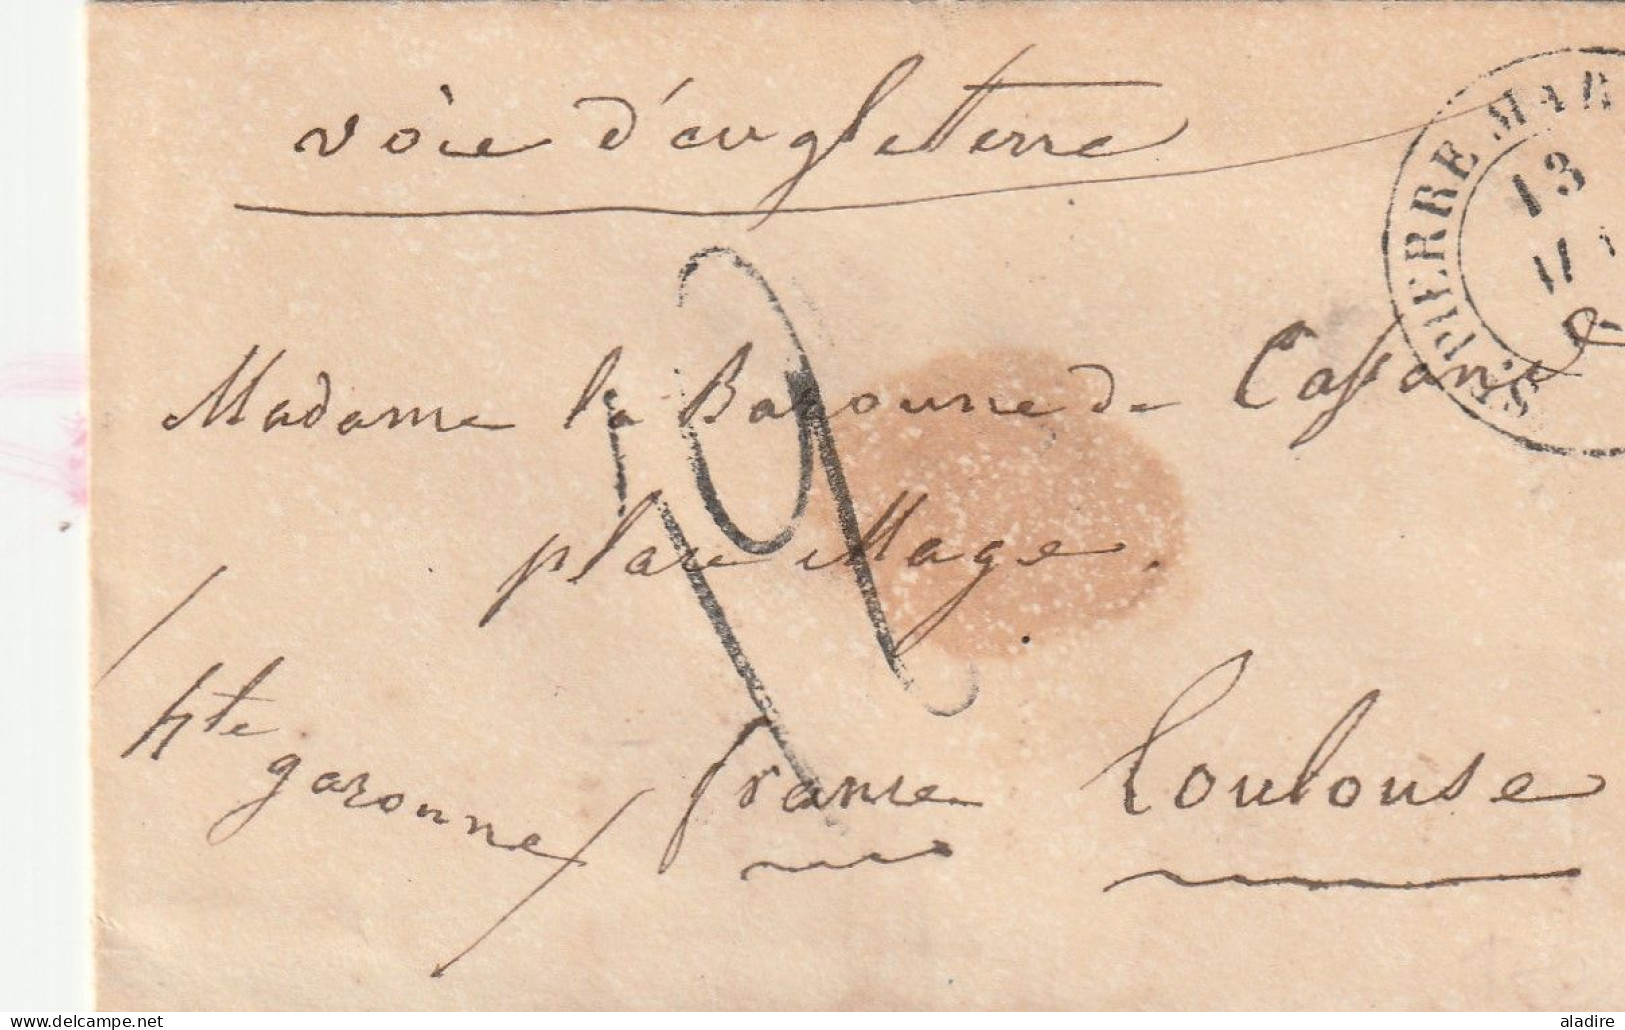 voie d'engleterre
ST PIERRE MAR
13
Madame la Baronne de Cassan
place Mage.
hte garonne / france Toulouse
www.delcampe.net
aladire